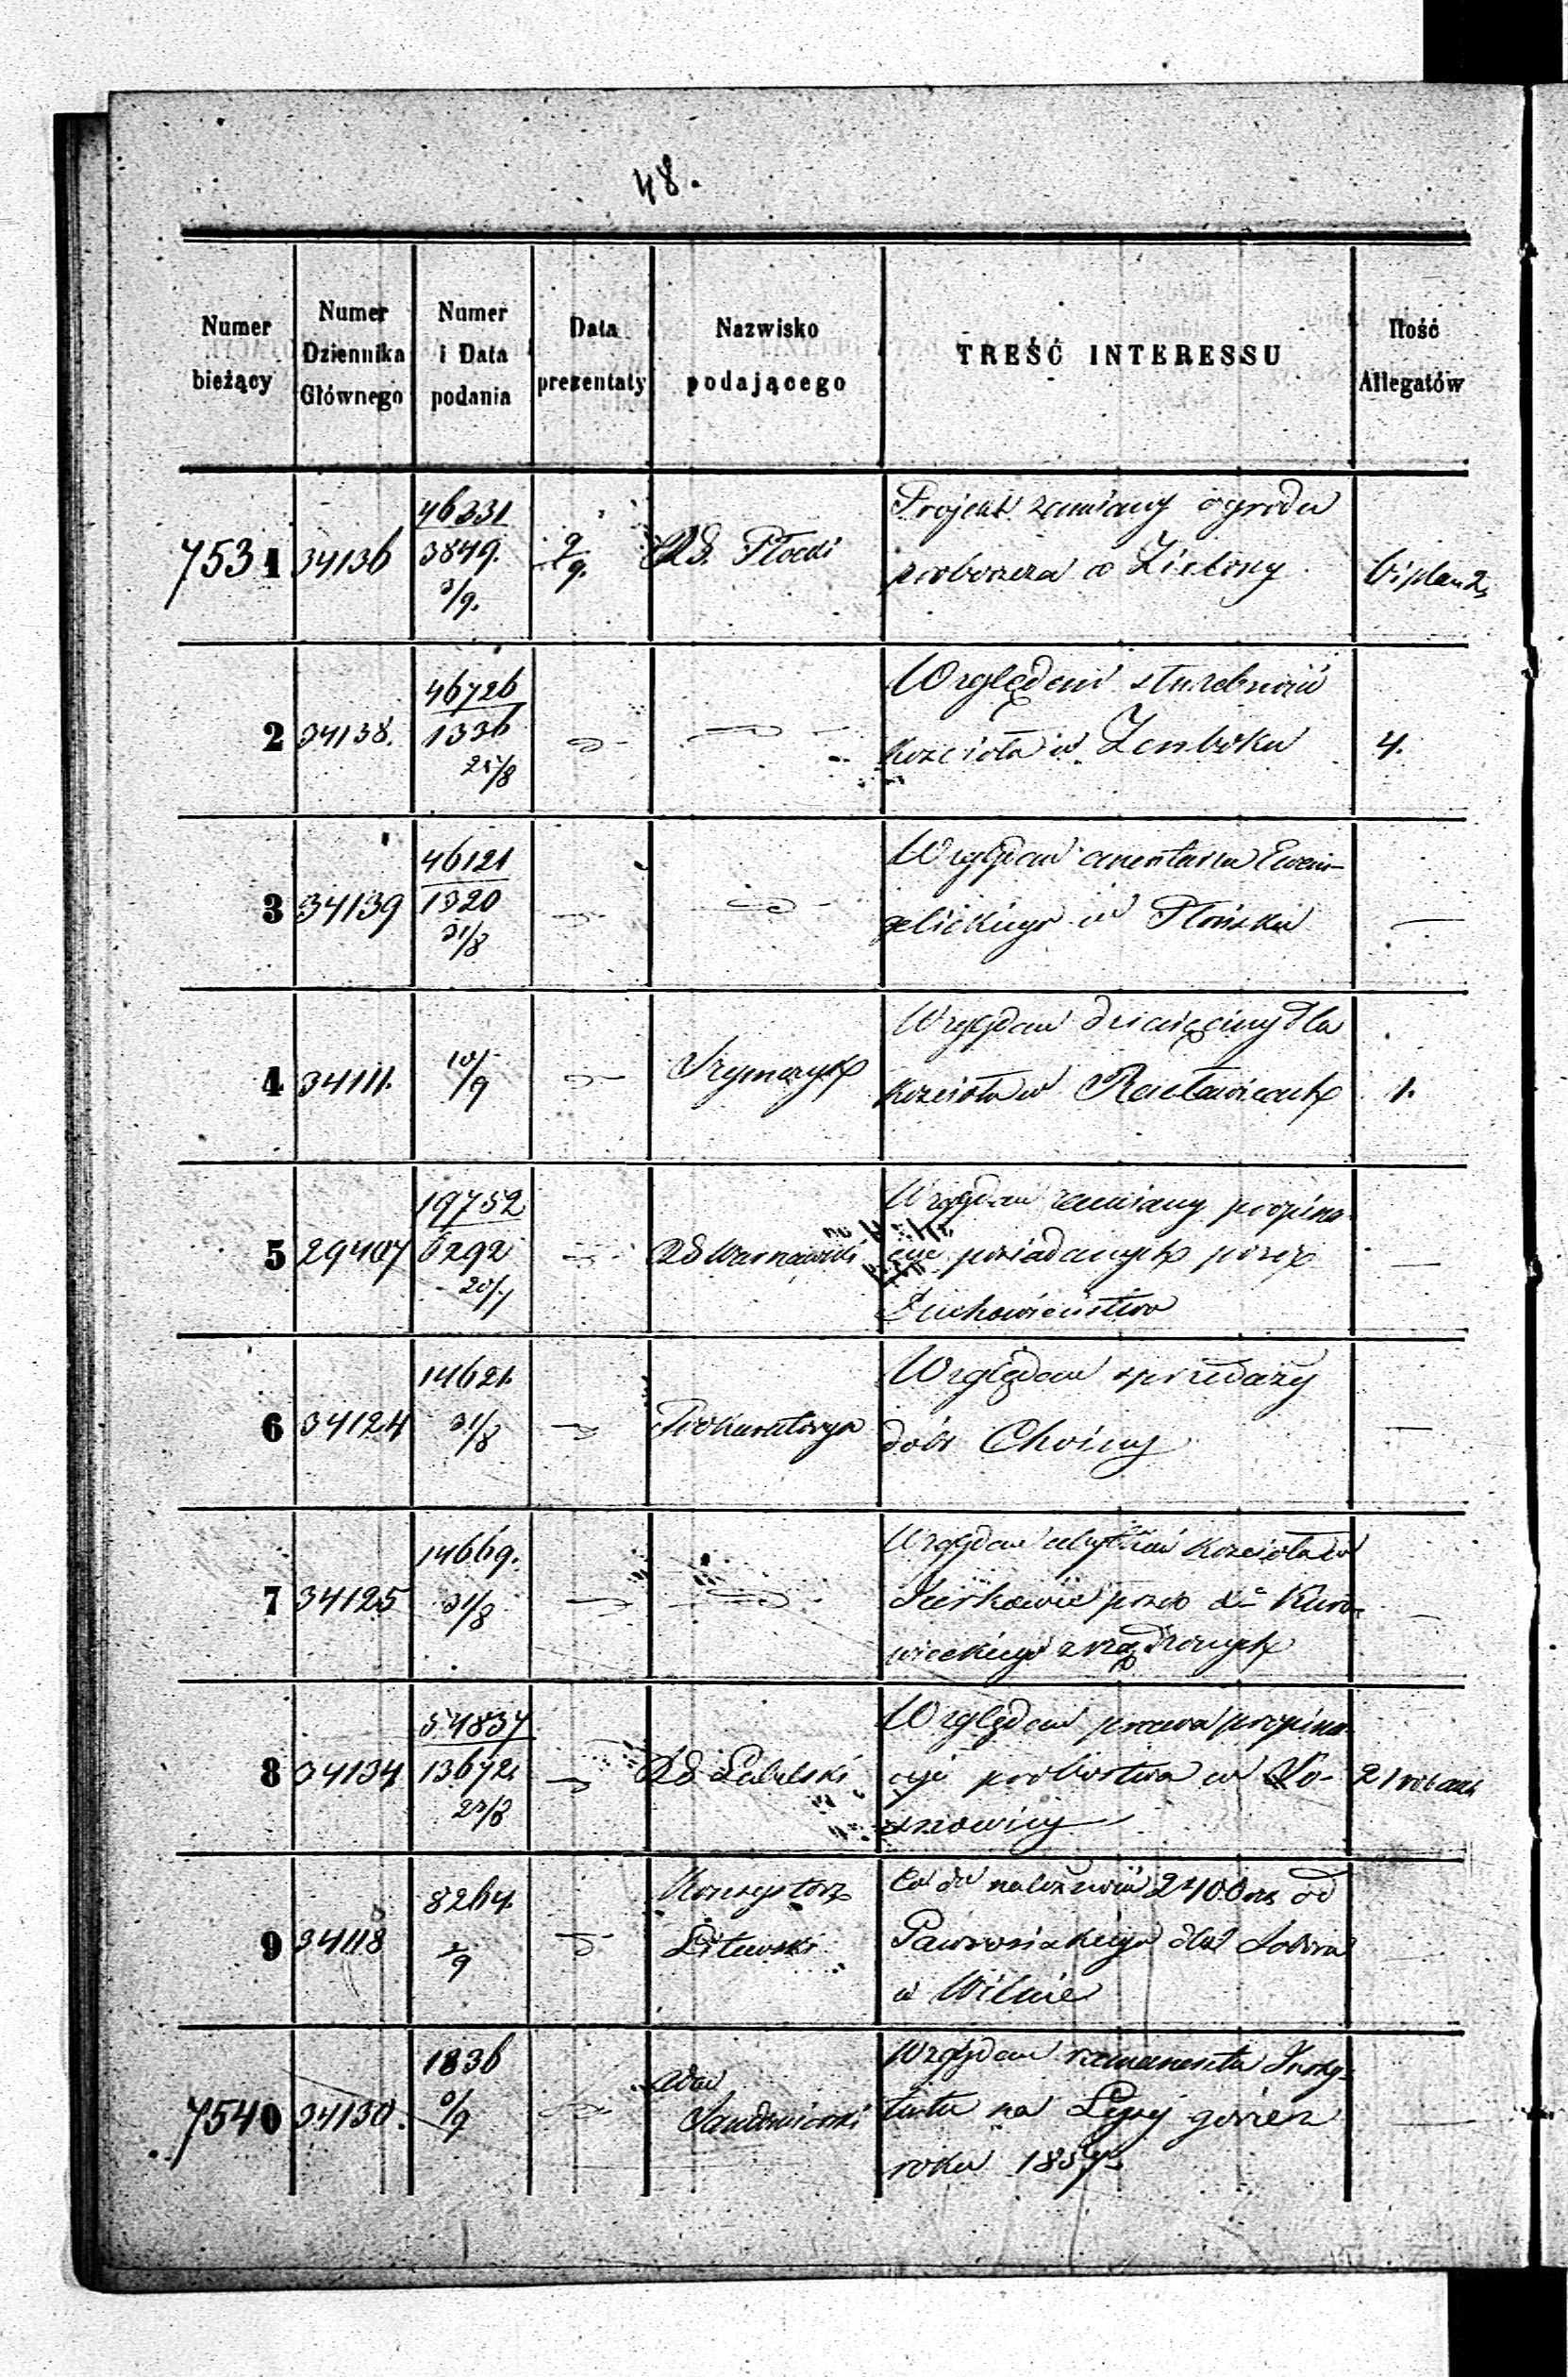 48.
Numer bieżący | Numer Dziennika Głównego | Numer i Data podania | Data prezentaty | Nazwisko podającego | TREŚĆ INTERESSU | Ilość Allegatów
7531 | 34136 | 46331 / 3849. 3/9. | 9/9. | Rd. Płocki | Projekt zamiany ogrodu
proboszcza w Zielony | 6 i plan 2
2 | 34138. | 46726 / 1336 25/8 | Względem służebności
kościoła w Zembsku | 4.
3 | 34139 | 46121 / 1320 31/8 | Względem cmentarza Ewan-
gelickiego w Płońsku | —
4 | 34111. | 10/9 | Szymczyk | Względem dziesięciny dla
kościoła w Racławicach | 1.
5 | 29407 | 19752 / 6292 20/7 | Rd Warszawski | Względem zamiany propina-
cyi posiadanych przez
Duchowieństwo | —
6 | 34124 | 14621. 31/8 | Prokuratorya | Względem sprzedaży
dóbr Choiny | —
7 | 34125 | 14669. 31/8 | Względem kościoła w
przez Xa Kuro-
wieckiego zrządzonych | —
8 | 34134 | 54837 / 13672. 23/8 | Rd Lubelski | Względem prawa propina-
cyi probostwa w | 21
9 | 34118 | 8264. 2/9 | Konsystorz
Litewski | Co do należności 2400 rs od
dla Soboru
w Wilnie | —
7540 | 34130. | 1836 | Adm
Sandomierski | Względem remanentu Insty-
tutu na Łysej górze z
roku 1857. | —